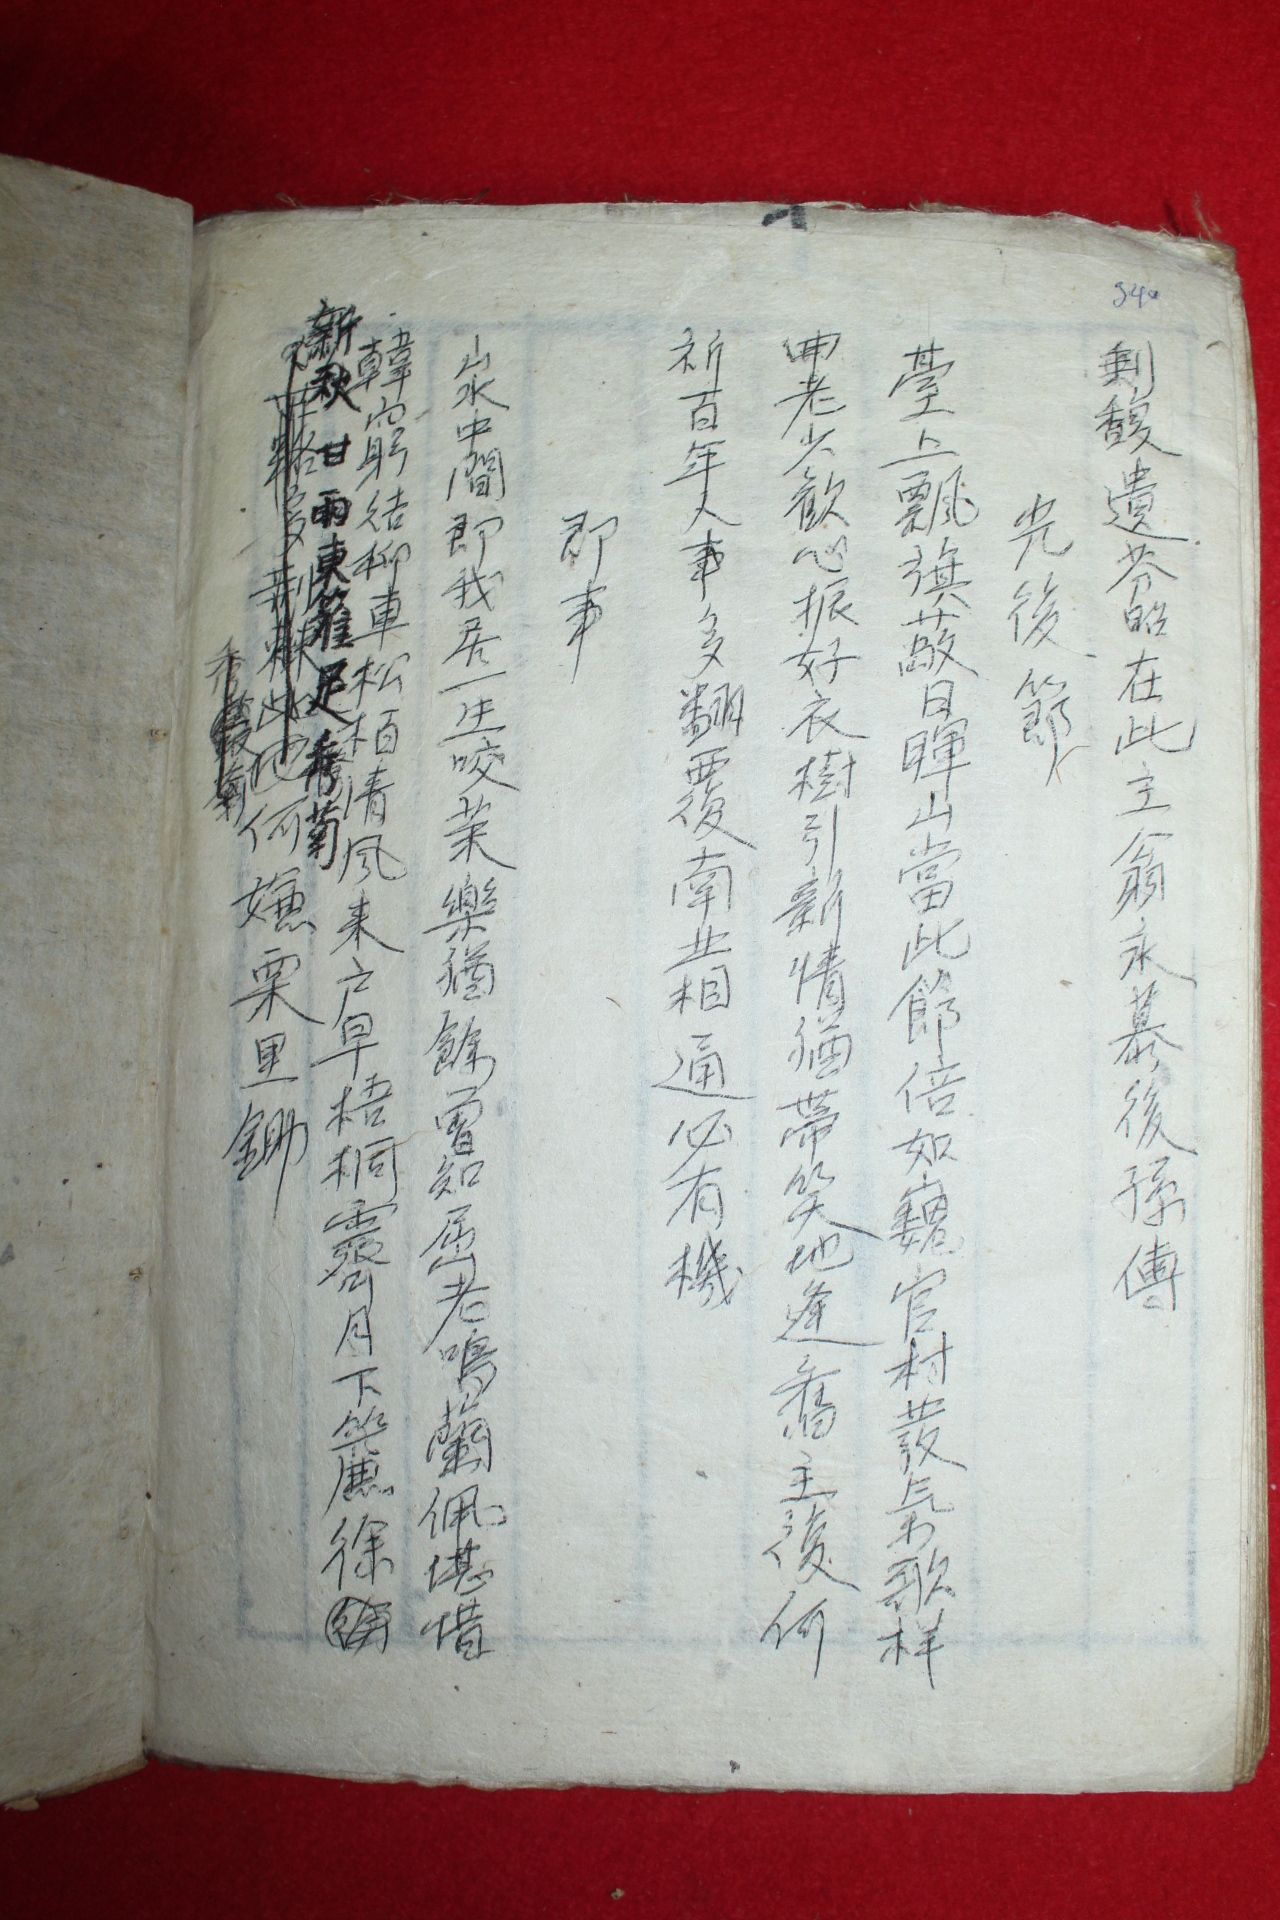 340
剩馥遺芬昭在此主翁永慕後孫傳
光後節
臺上飄旗蔽日暉山當此節倍如巍官村發氣歌样
冊老少歡心振好衣樹引新情猶帶笑地逢舊主復何
祈百年人事多翻覆南北相通必有機
即事
山水中間即我居一生咬菜樂猶餘曾知屈老鳴蘭佩堪惜
韓窮結柳車松栢清風来戶早梧桐霽月下簾徐
新秋甘雨東籬足秀菊
荊棘此地何嫌栗里鋤
秀 菊